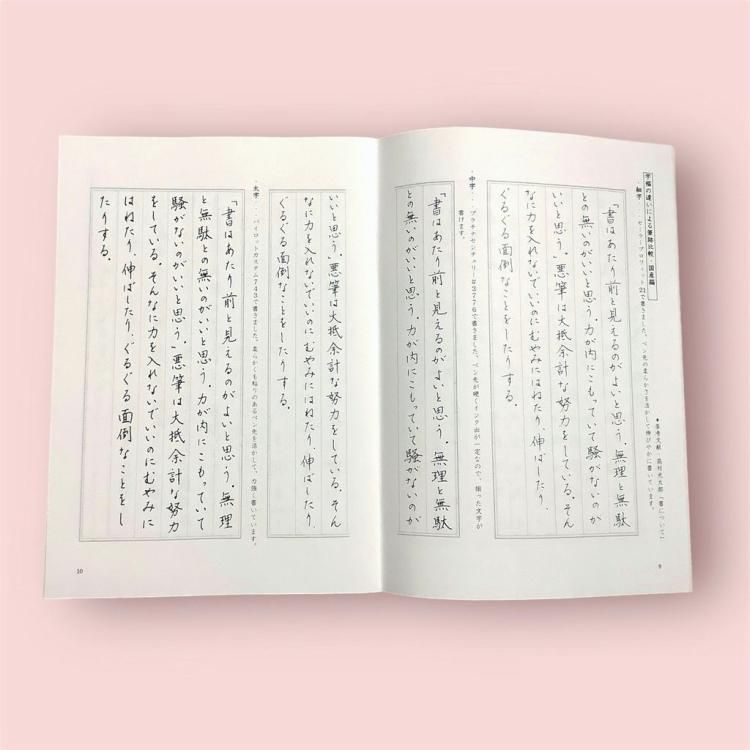 字幅の違いによる筆跡比較・国産編
★参考文献・高村光太郎「書について」
・細字 ・・・セーラープロフィット21で書きました。ペン先の柔らかさを活かして伸びやかに書いています。
「書はあたり前と見えるのがよいと思う。無理と無駄
との無いのがいいと思う。力が内にこもっていて騒がないのが
いいと思う。」悪筆は大抵余計な努力をしている。そん
なに力を入れないでいいのにむやみにはねたり、伸ばしたり、
ぐるぐる面倒なことをしたりする。
・中字 ・・・プラチナセンチュリー#3776で書きました。ペン先が硬くインク出が一定なので、揃った文字が
書けます。
「書はあたり前と見えるのがよいと思う。無理と無駄
との無いのがいいと思う。力が内にこもっていて騒がないのが
9
いいと思う。」悪筆は大抵余計な努力をしている。そん
なに力を入れないでいいのにむやみにはねたり、伸ばしたり、
ぐるぐる面倒なことをしたりする。
・太字 ・・・パイロットカスタム743で書きました。柔らかくも粘りのあるペン先を活かして、力強く書いています。
「書はあたり前と見えるのがよいと思う。無理
と無駄との無いのがいいと思う。力が内にこもっていて
騒がないのがいいと思う。悪筆は大抵余計な努力
をしている。そんなに力を入れないでいいのにむやみに
はねたり、伸ばしたり、ぐるぐる面倒なことをし
たりする。
10